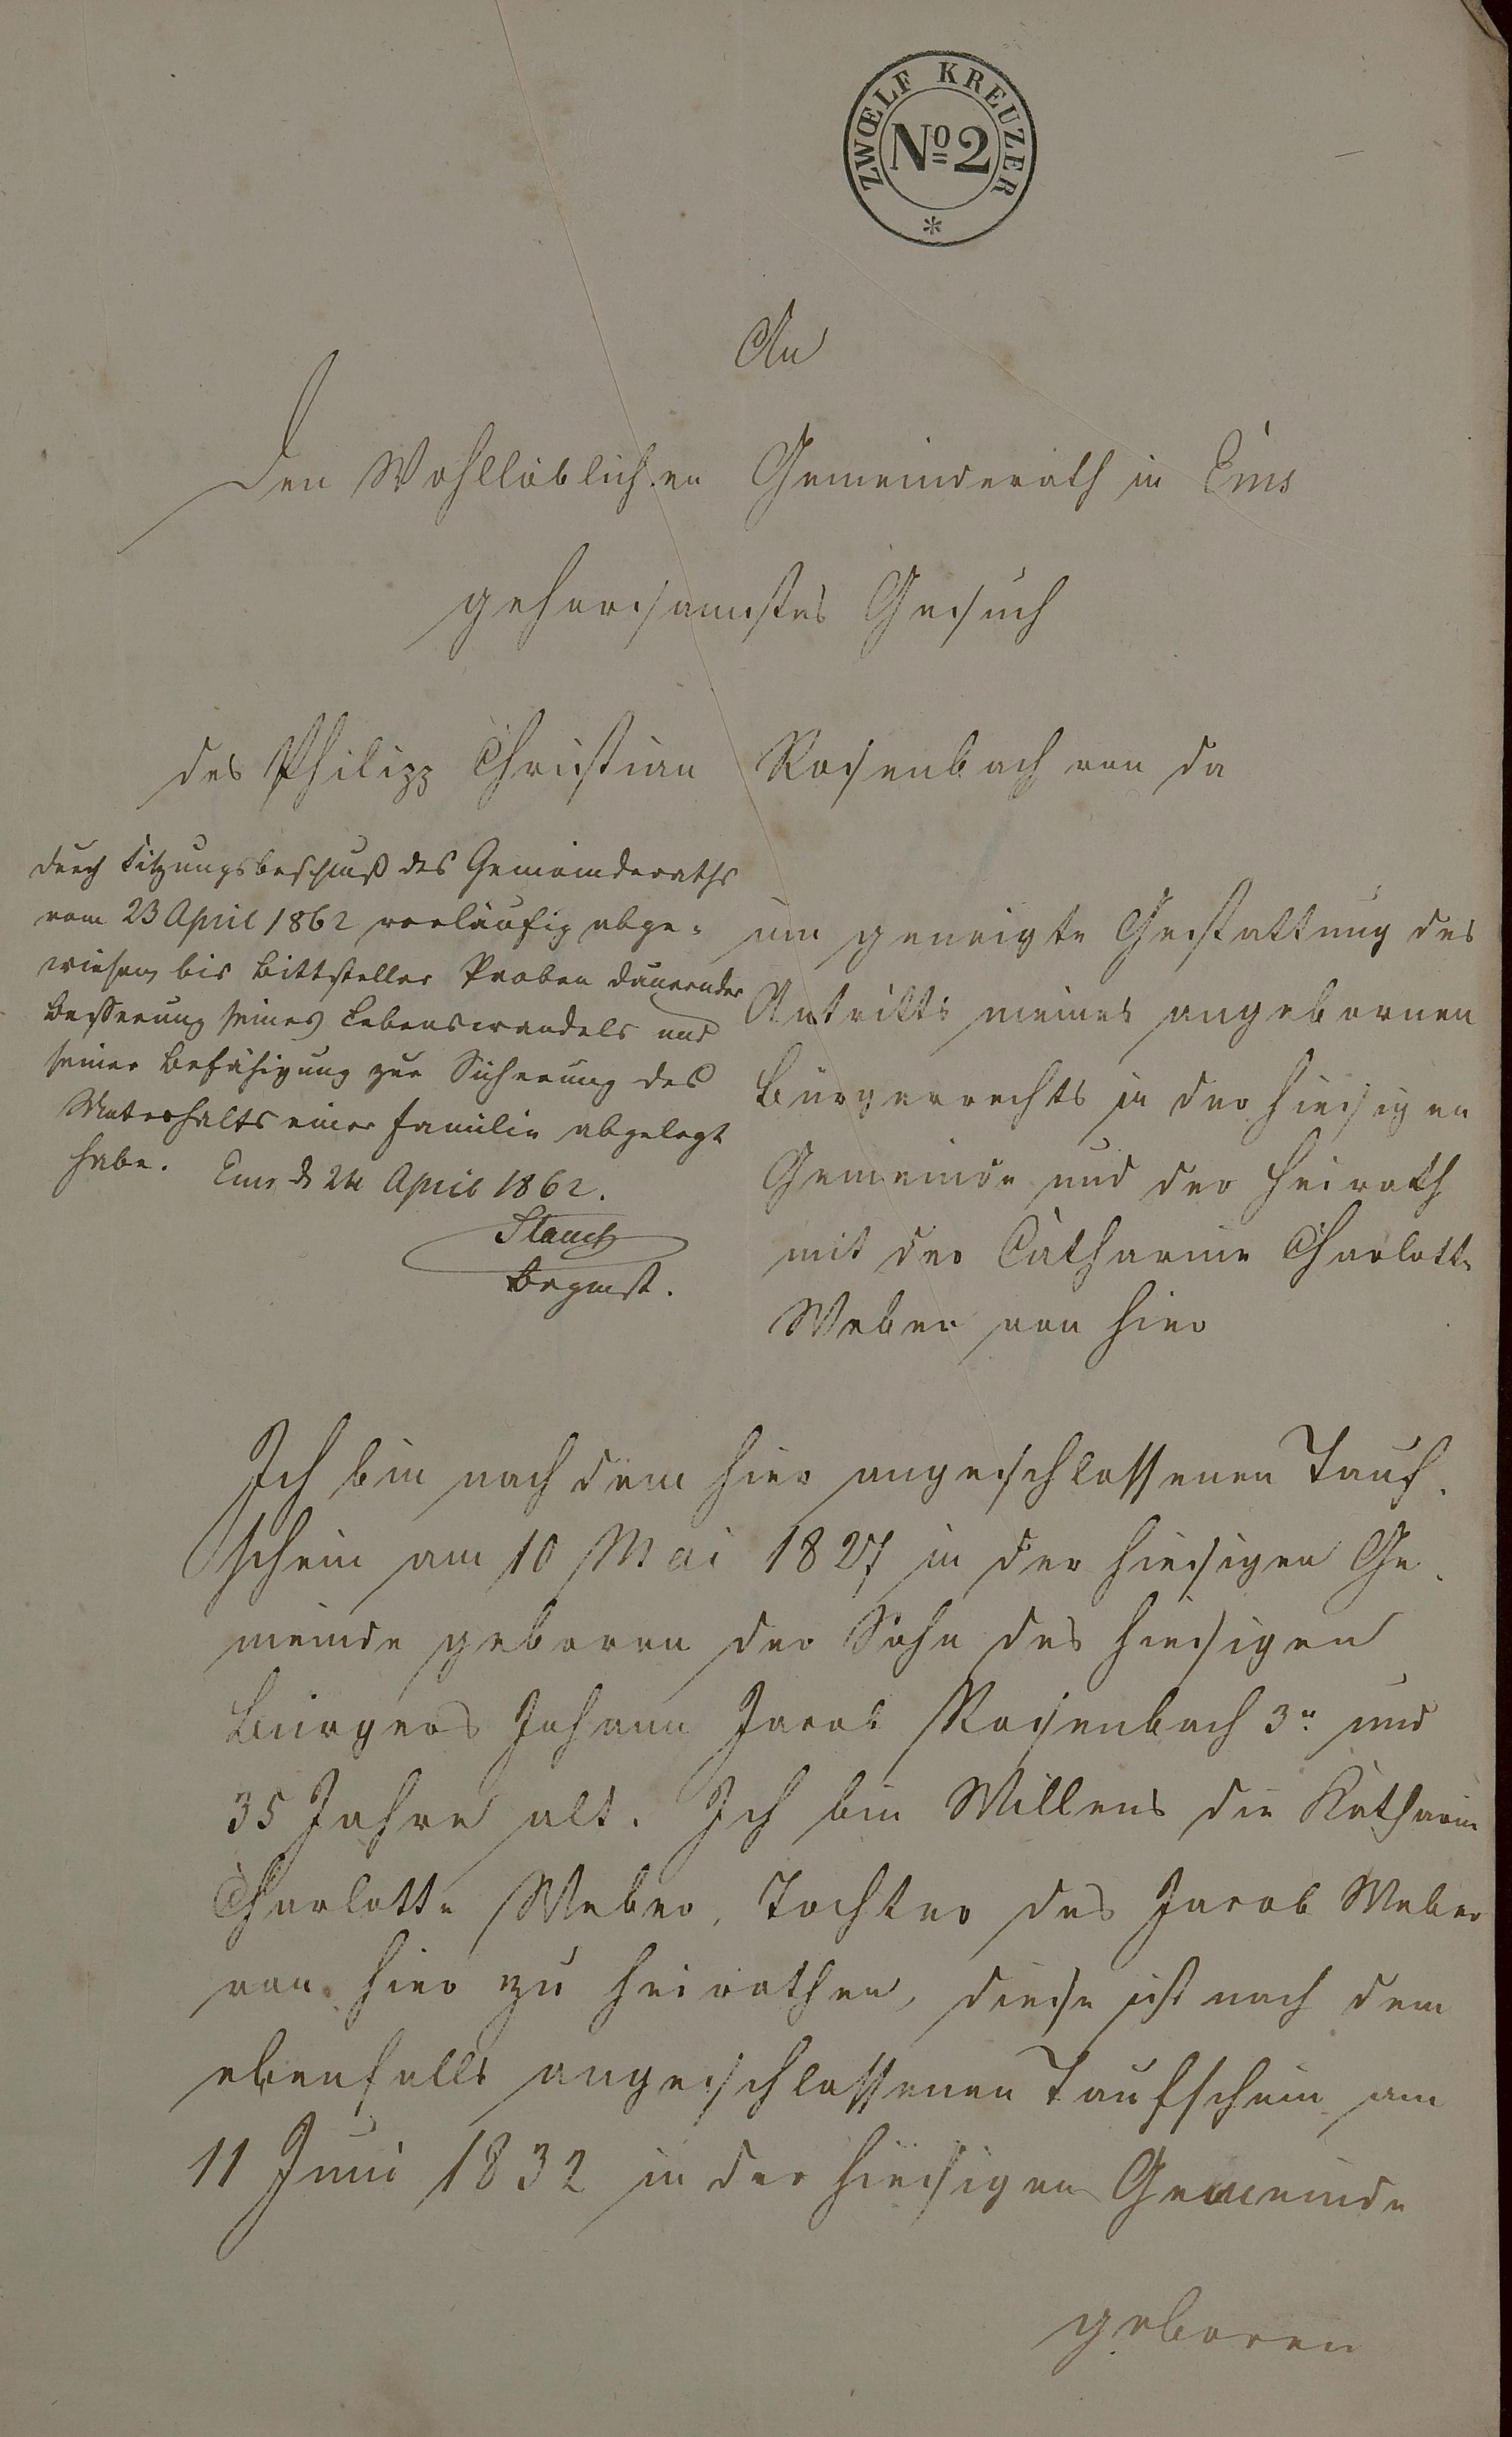 ZWŒLF KREUZER
No 2
*
An
den Wohllöblichen Gemeinderath in Ems
gehorsamstes Gesuch
des Philipp Christian Rosenbach von da
durch Sitzungsbeschluß des Gemeinderaths
vom 23 April 1862 vorläufig abge-
wiesen, bis Bittsteller Proben dauernder
Besserung seines Lebenswandels und
seiner Befähigung zur Sicherung des
Unterhalts einer Familie abgelegt
habe. Ems d 24 April 1862.
Stauch
Begmst.
um geneigte Gestattung des
Antritts meines angebornen
Bürgerrechts in der hiesigen
Gemeinde und der Heirath
mit der Catharine Charlotte
Weber von hier
Ich bin nach dem hier angeschlossenen Tauf-
schein am 10 Mai 1827 in der hiesigen Ge-
meinde geboren der Sohn des hiesigen
Bürgers Johann Jacob Rosenbach 3r und
35 Jahre alt. Ich bin Willens die Katharin
Charlotte Weber, Tochter des Jacob Weber
von hier zu heirathen, diese ist nach dem
ebenfalls angeschlossenen Taufschein am
11 Juni 1832 in der hiesigen Gemeinde
geboren